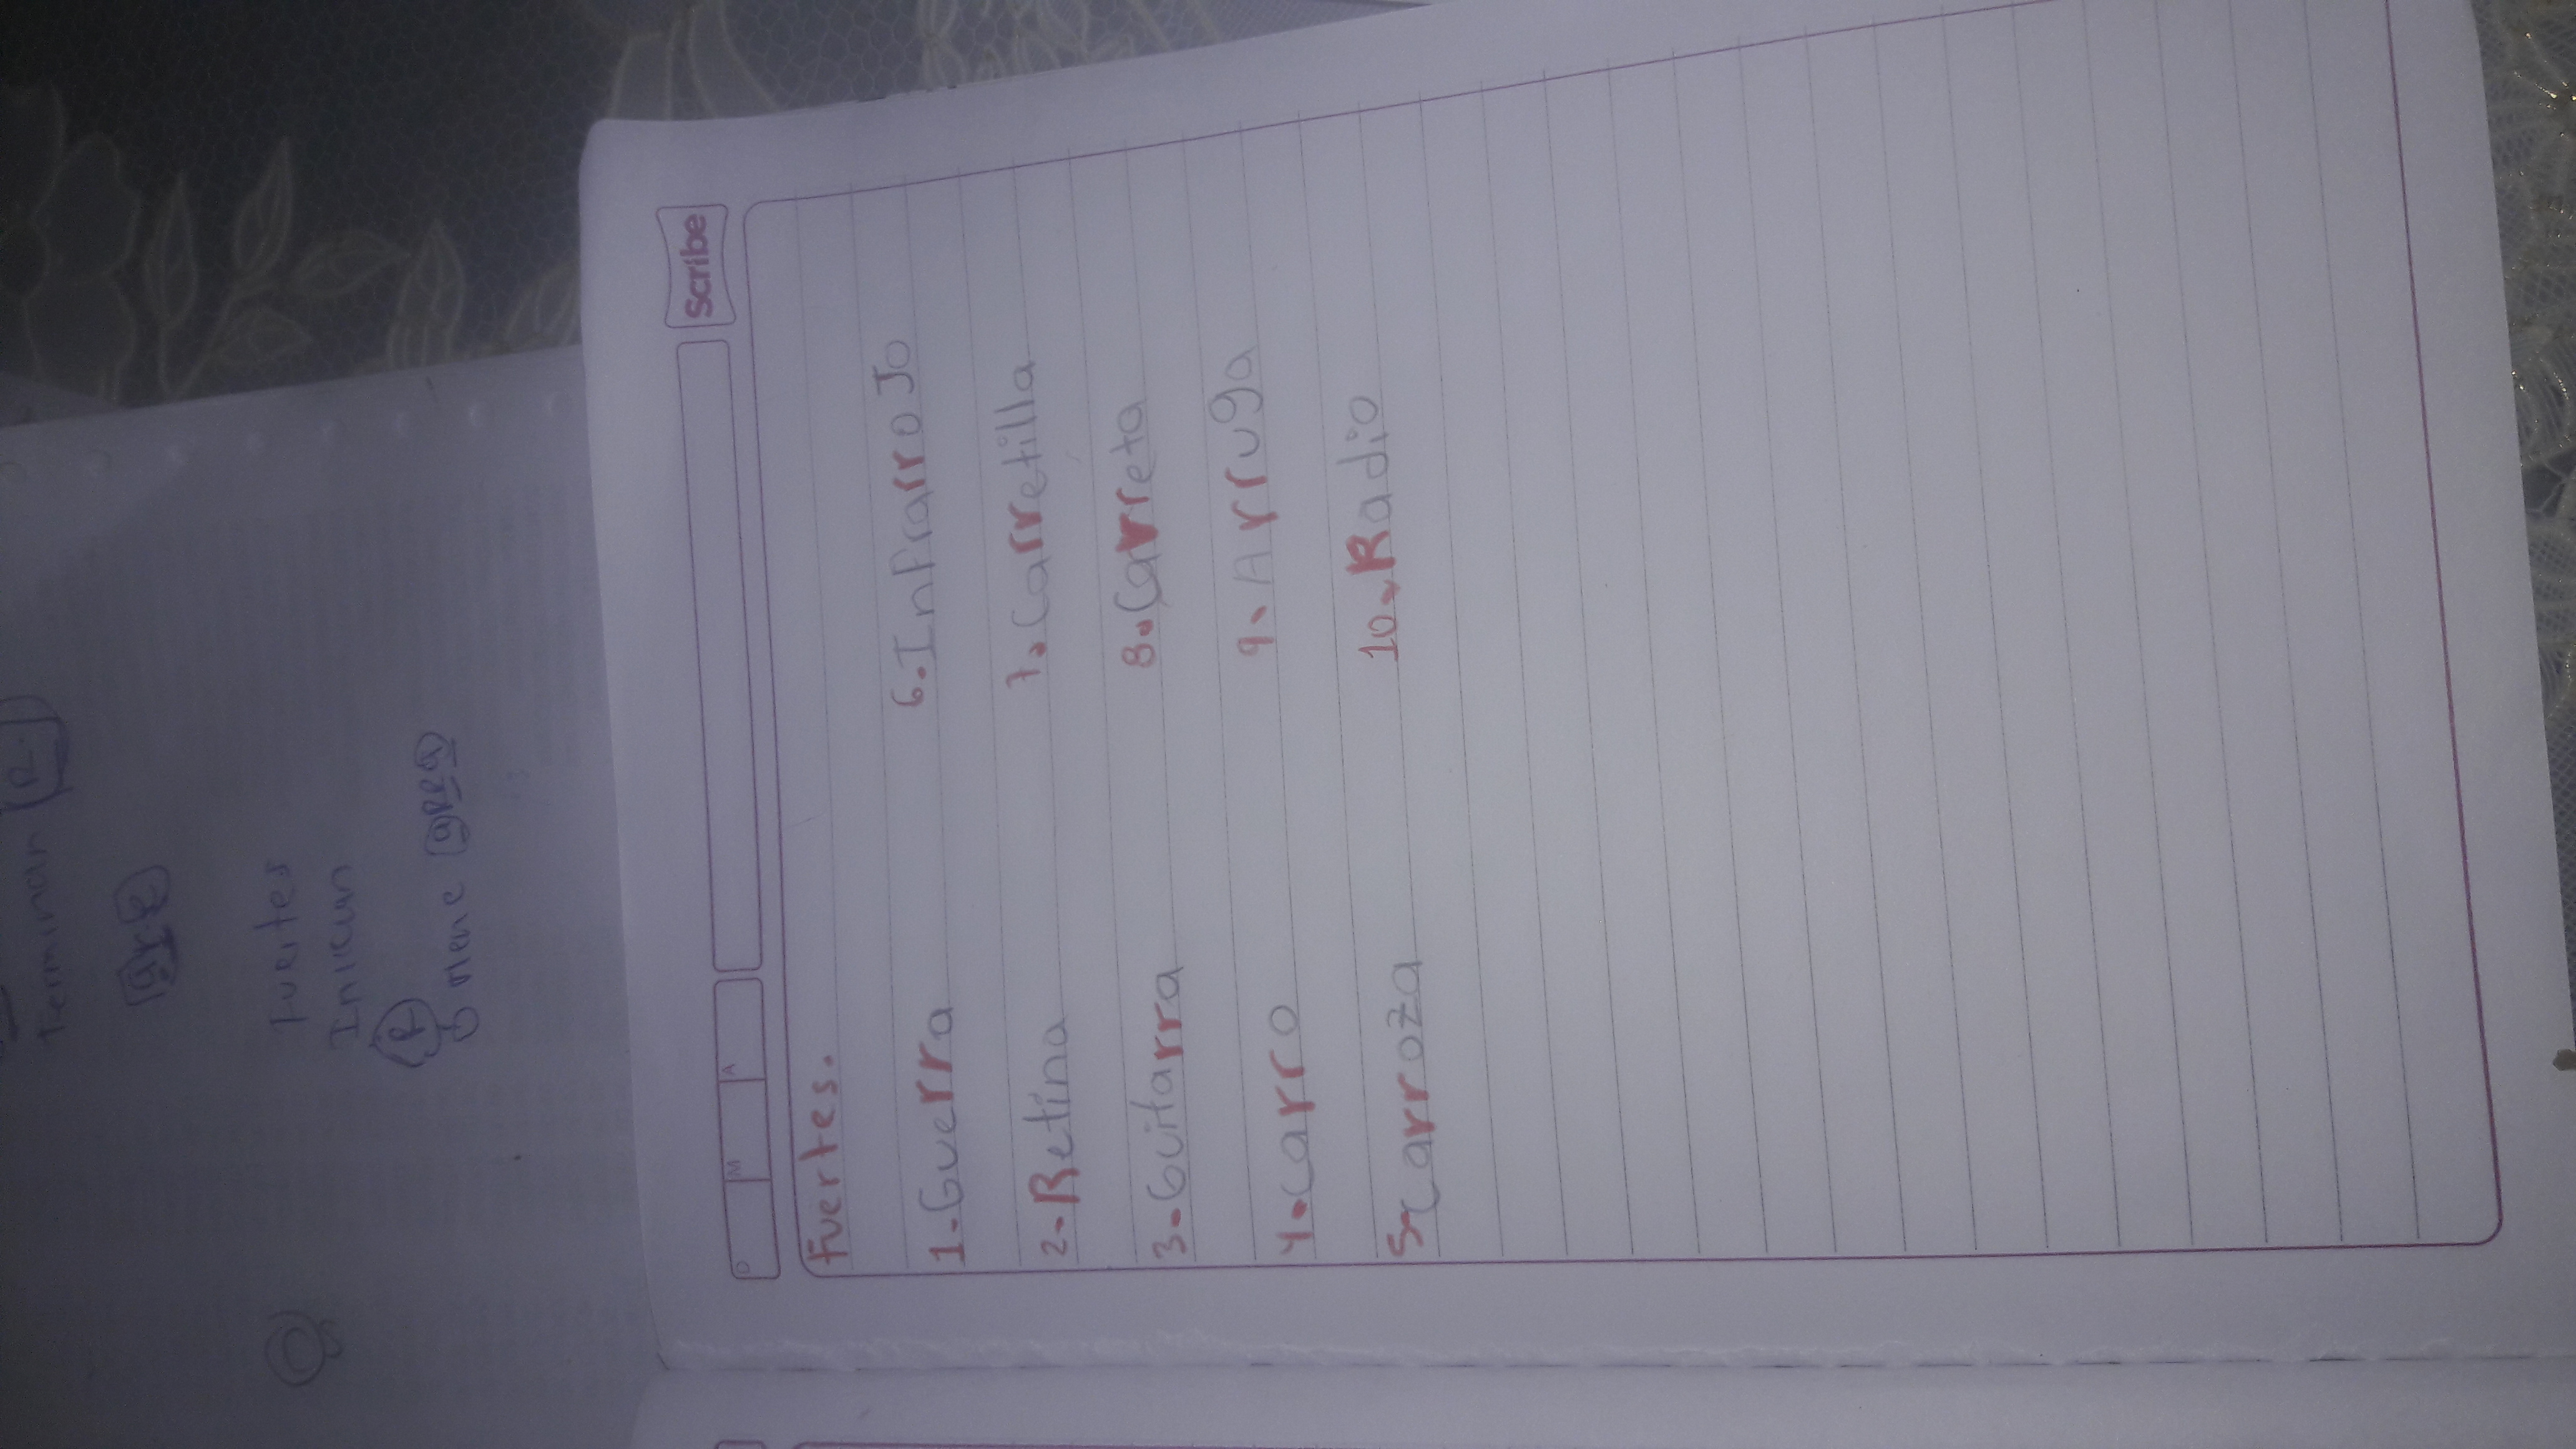 Terminan R
are
Fuertes
Inician
R
O tiene arra
Scribe
D M A
Fuertes.
1. Guerra
2. Retina
3. Guitarra
4. Carro
5. Carroza
6. InfrarroJo
7. Carretilla
8. Carreta
9. Arruga
10. Radio